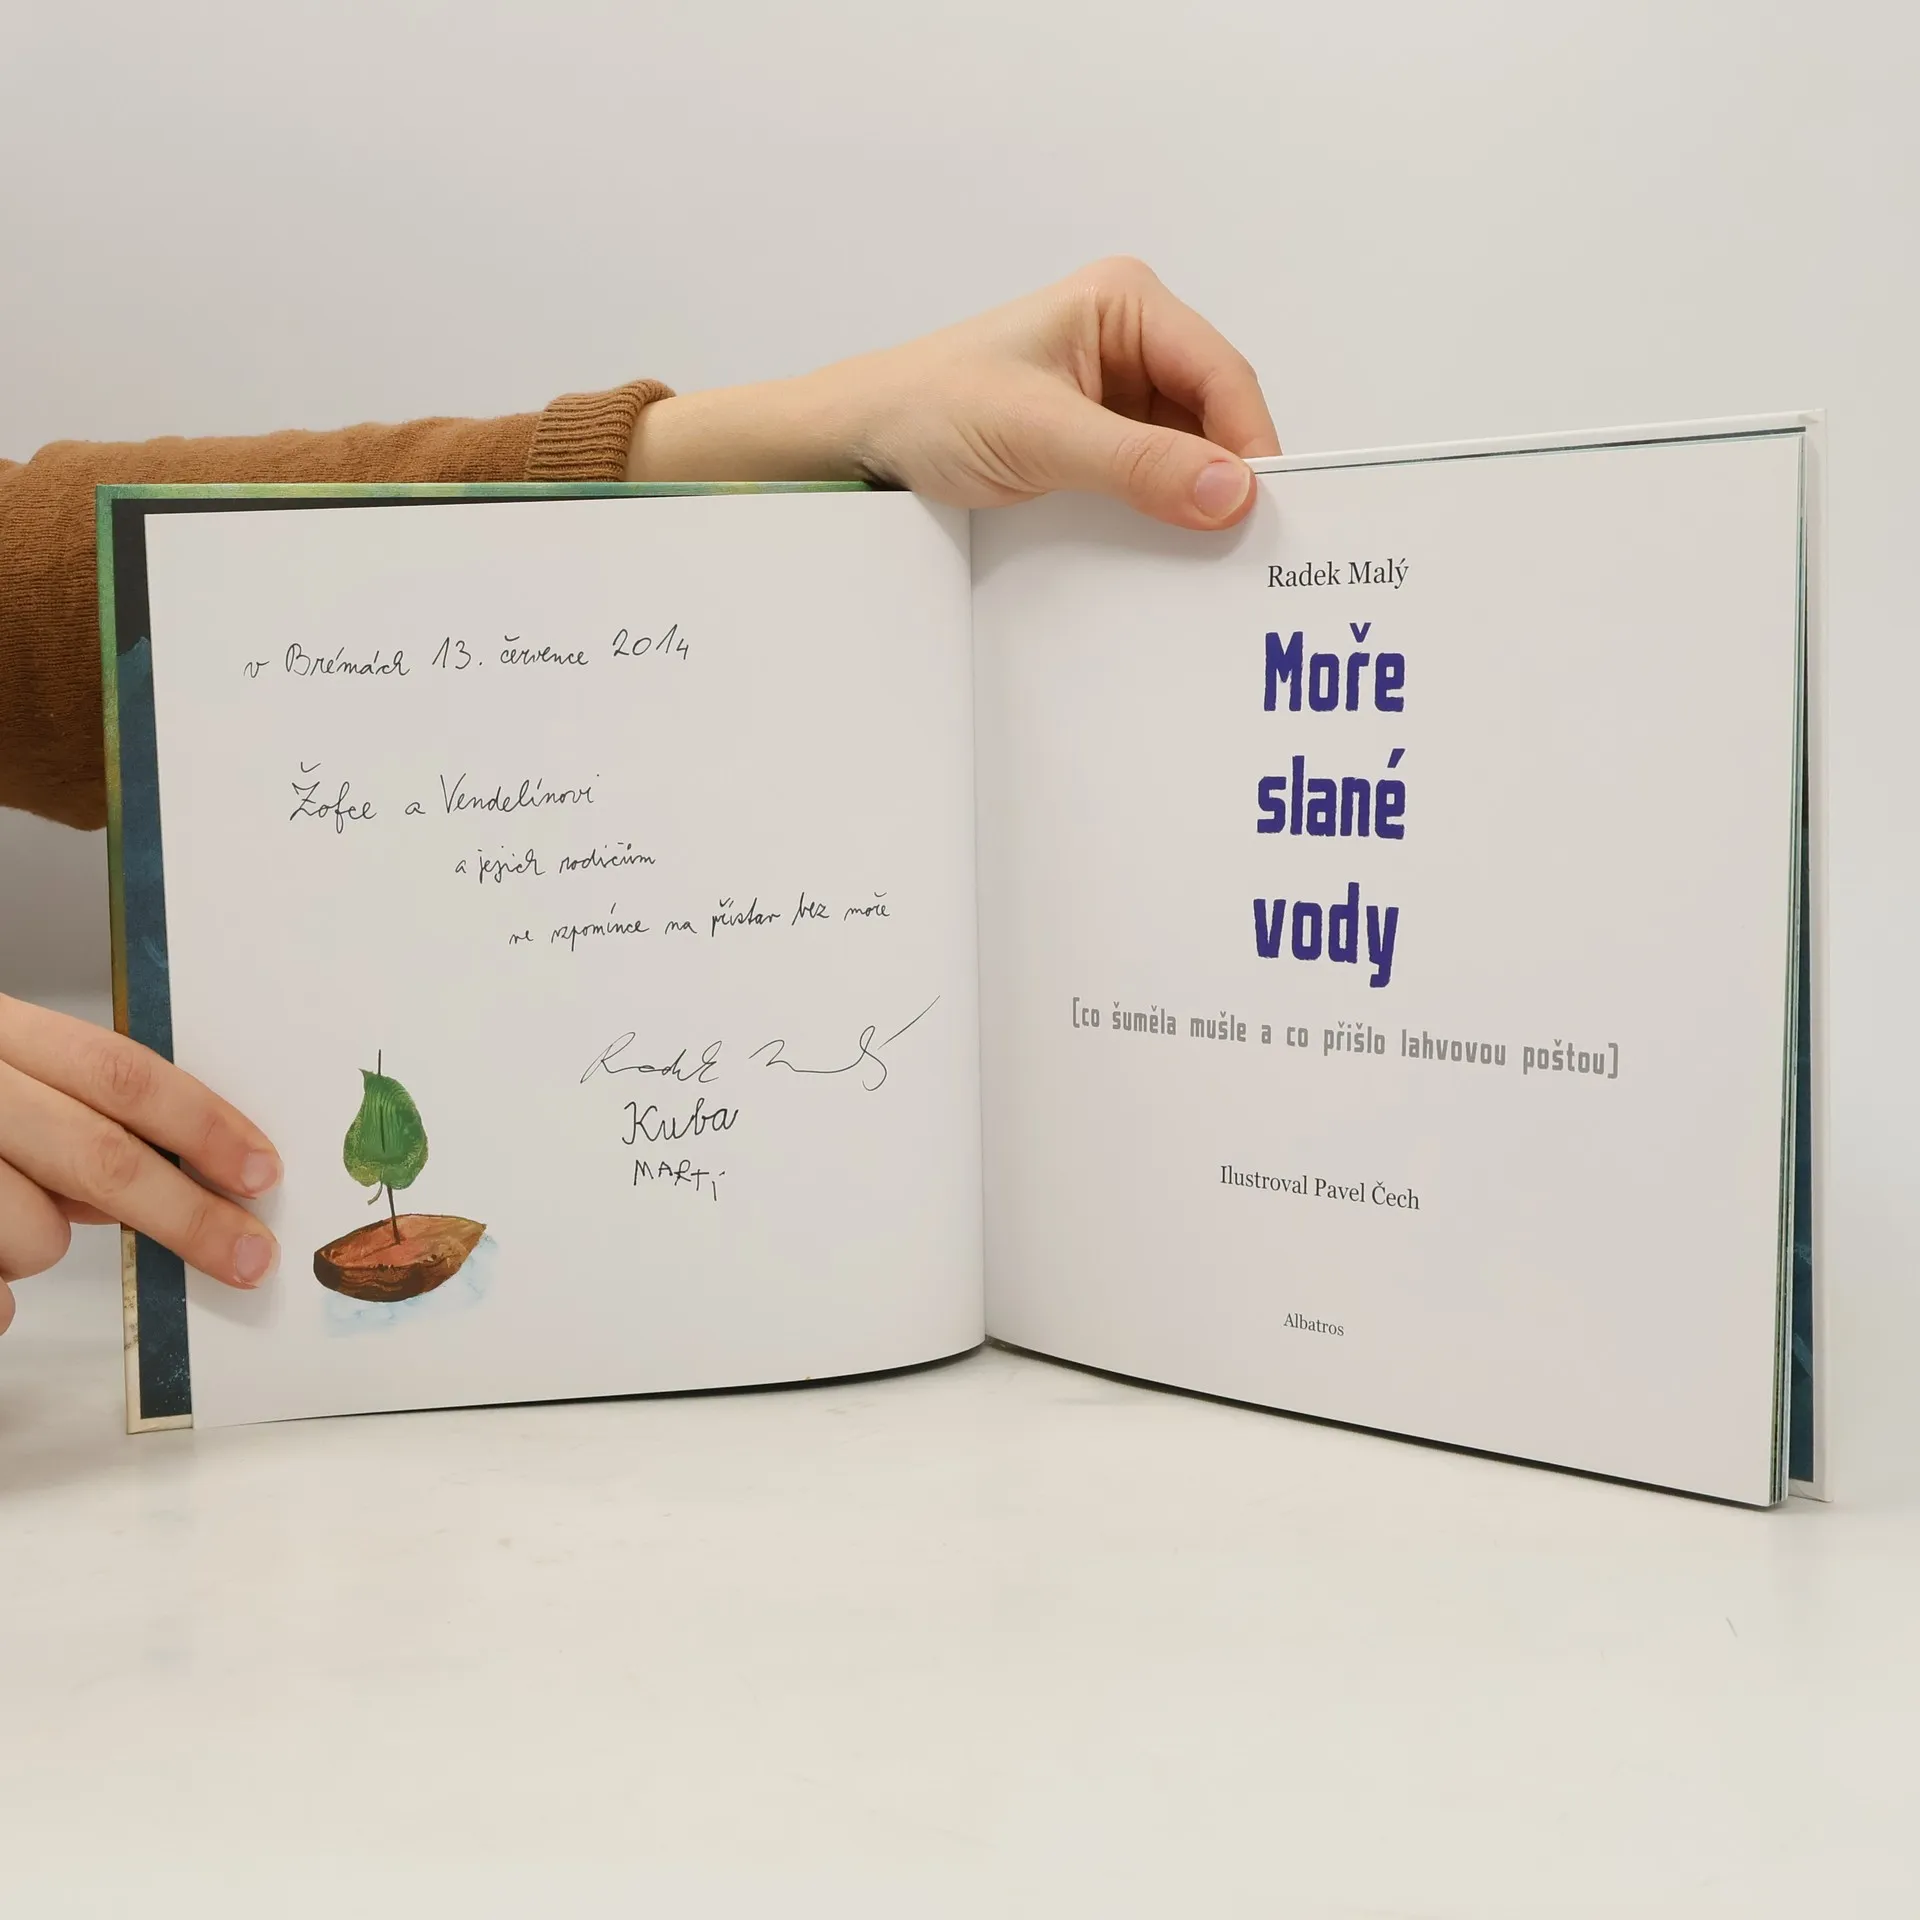 v Brémách 13. července 2014
Žofce a Vendelínovi
a jejich rodičům
ve vzpomínce na přístav bez moře
Radek Malý
Kuba
MARTI
Radek Malý
Moře
slané
vody
[co šuměla mušle a co přišlo lahvovou poštou]
Ilustroval Pavel Čech
Albatros